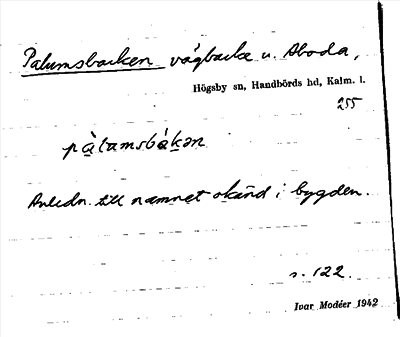 Palumsbacken vägbacke u. Aboda,
Högsby sn, Handbörds hd, Kalm. l.
255
pàlamsbákən
Anledn. till namnet okänd i bygden.
s. 122.
Ivar Modéer 1942